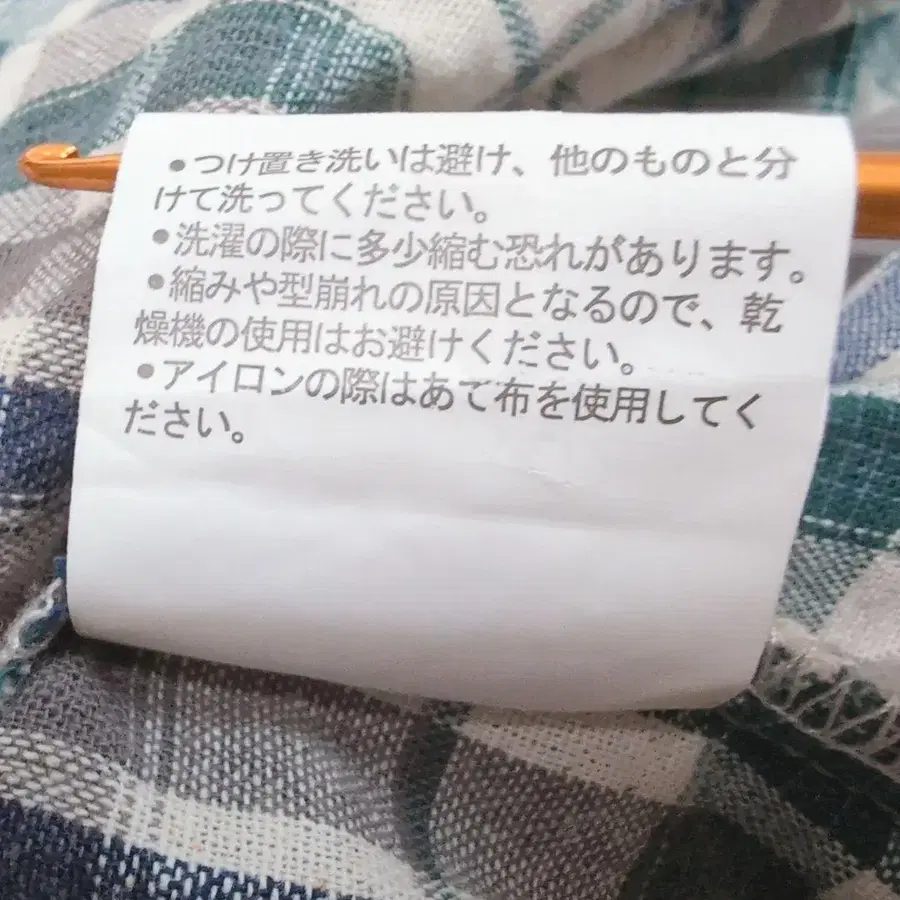 ●つけ置き洗いは避け、他のものと分
けて洗ってください。
●洗濯の際に多少縮む恐れがあります。
●縮みや型崩れの原因となるので、乾
燥機の使用はお避けください。
●アイロンの際はあて布を使用してく
ださい。